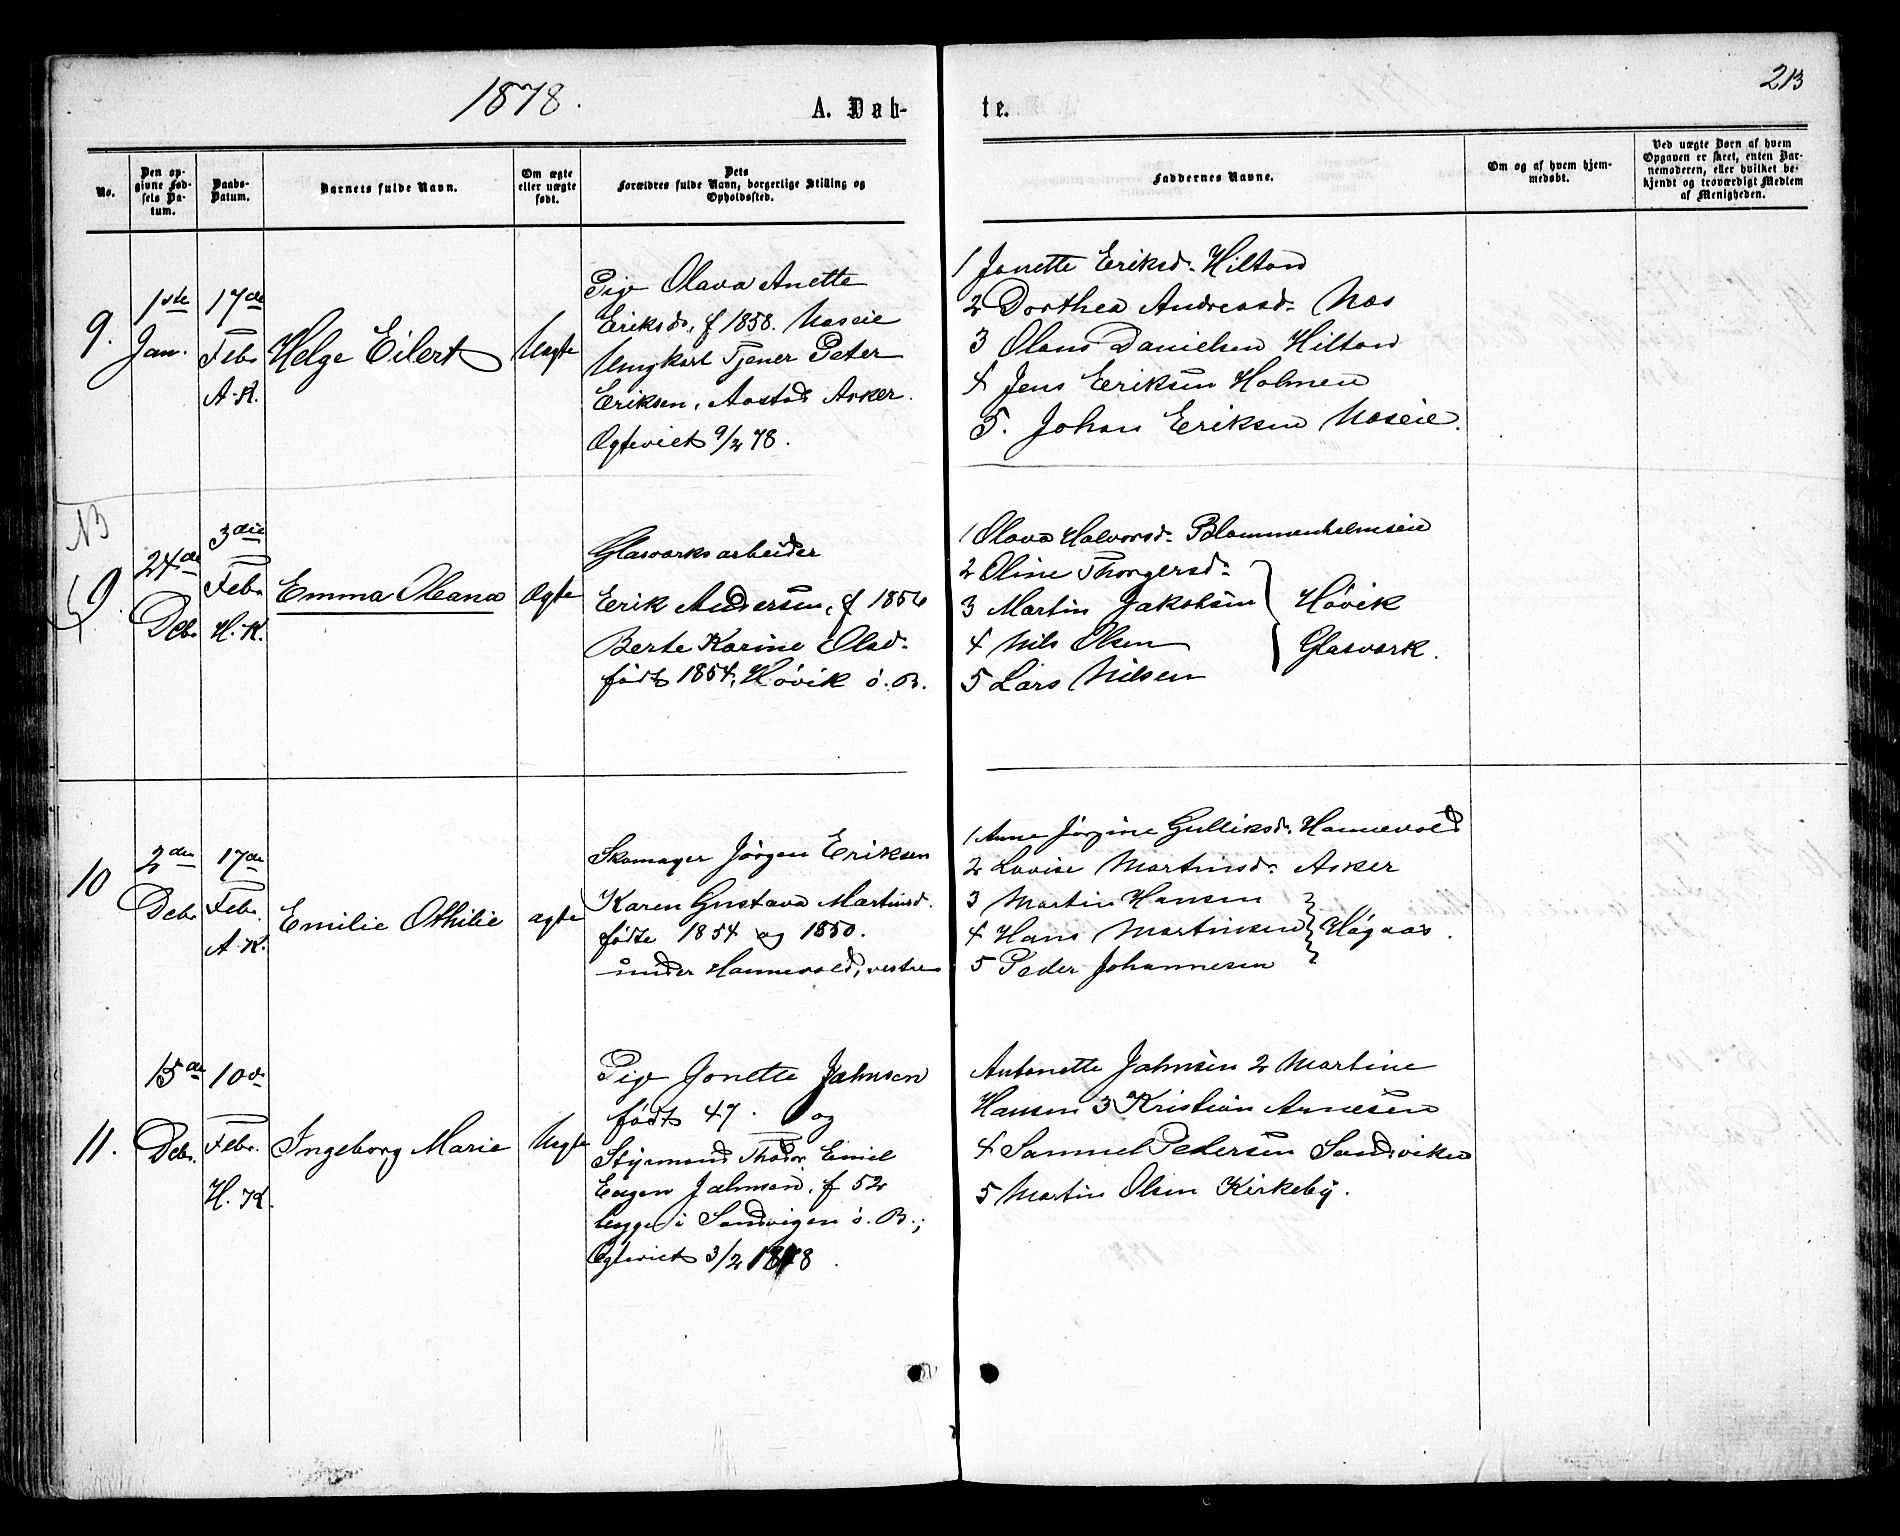 1878.
A. Døb-
te.
213
No.
Den op-
givne Fød-
sels Da-
tum.
Daabs-
Datum.
Barnets fulde Navn.
Om ægte
eller uægte
født.
Dets
Forældres fulde Navn, borgerlige Stilling og
Opholdssted.
Faddernes Navne.
Om og af hvem hjem-
medøbt.
Ved uægte Børn af hvem
Opgaven er skeet, enten Bar-
nemoderen, eller hvilket be-
kjendt og troværdigt Medlem
af Menigheden.
9.
1ste
Jan.
17de
Febr.
A.K.
Helge Eilert
Uægte
Pige Olava Anette
Eriksd., f 1858. Næseie
Ungkarl Tjener Peter
Eriksen, Aastad Asker.
Ægteviet 9/2 78.
1 Jonette Eriksd. Hilton
2 Dorthea Andreasd. Næs
3 Olaus Danielsen Hilton
4 Jens Eriksen Holmen
5. Johan Eriksen Næseie.
NB
9.
24de
Debr.
3die
Febr.
H.K.
Emma Oleana
Ægte
Glasværksarbeider
Erik Andersen, f 1856
Berte Karine Olsd.
født 1854, Høvik ø. B.
1 Olava Halvorsd. Blommenholmseie
2 Oline Thorgersd.
3 Martin Jakobsen
4 Nils Olsen
5 Lars Nilsen
Høvik
Glasværk.
10
2den
Debr.
17de
Febr.
A.K.
Emilie Othilie
ægte
Skomager Jørgen Eriksen
Karen Gustava Martinsd.
fødte 1854 og 1850.
under Hannevold, vestre
1 Anne Jørgine Gulliksd. Hannevold
2 Lovise Martinsd. Asker
3 Martin Hansen
4 Hans Martinsen
5 Peder Johannesen
Høgaas.
11.
15de
Debr.
10de
Febr.
H.K.
Ingeborg Marie
Uægte
Pige Jonette Jahnsen
født 47. og
Styrmand Thodor Emil
Eugen Jahnsen, f 52
begge i Sandvigen ø. B.;
Ægteviet 3/2 1878.
Antonette Jahnsen 2 Martine
Hansen 3 Kristian Arnesen
4 Samuel Pedersen Sandviken
5 Martin Olsen Kirkeby.